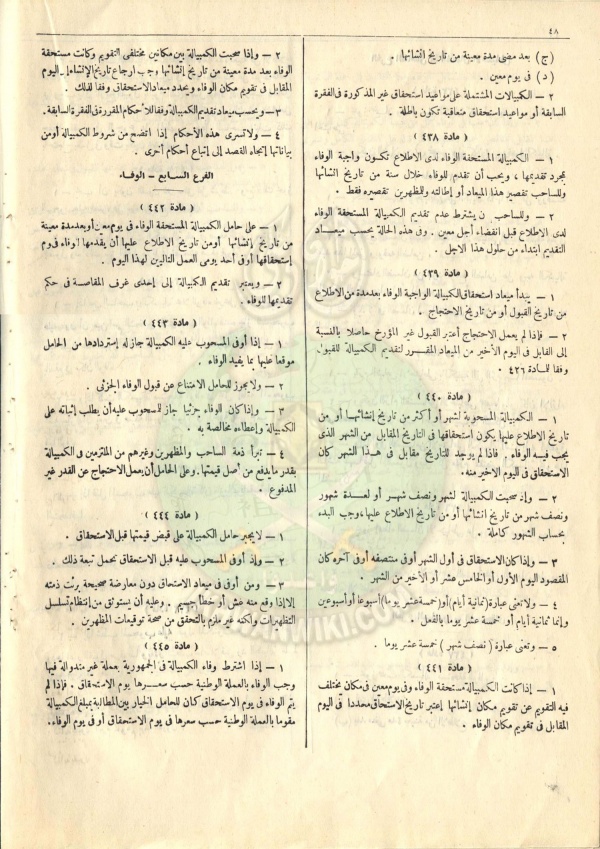 ٤٨
(ج) بعد مضى مدة معينة من تاريخ إنشائها .
(د) فى يوم معين .
٢ – الكمبيالات المشتملة على مواعيد استحقاق غير المذكورة فى الفقرة
السابقة أو مواعيد استحقاق متعاقبة تكون باطلة .
( مادة ٤٣٨ )
١ – الكمبيالة المستحقة الوفاء لدى الاطلاع تكون واجبة الوفاء
بمجرد تقديمها ، ويجب أن تقدم للوفاء خلال سنة من تاريخ انشائها
وللساحب تقصير هذا الميعاد أو إطالته وللمظهرين تقصيره فقط .
٢ – وللساحب ن يشترط عدم تقديم الكمبيالة المستحقة الوفاء
لدى الاطلاع قبل انقضاء أجل معين . وفى هذه الحالة يحسب ميعاد
التقديم ابتداء من حلول هذا الاجل .
( مادة ٤٣٩ )
١ – يبدأ ميعاد استحقاق الكمبيالة الواجبة الوفاء بعد مدة من الاطلاع
من تاريخ القبول أو من تاريخ الاحتجاج .
٢ – فإذا لم يعمل الاحتجاج أعتبر القبول غير المؤرخ حاصلا بالنسبة
إلى القابل فى اليوم الأخير من الميعاد المقرر لتقديم الكمبيالة للقبول
وفقا للمادة ٤٢٦ .
( مادة ٤٤٠ )
١ – الكمبيالة المسحوبة لشهر أو أكثر من تاريخ إنشائها أو من
تاريخ الاطلاع عليها يكون استحقاقها فى التاريخ المقابل من الشهر الذى
يجب فيه الوفاء . فاذا لم يوجد للتاريخ مقابل فى هذا الشهر كان
الاستحقاق فى اليوم الاخير منه .
٢ – وإذا سحبت الكمبيالة لشهر ونصف شهر أو لعدة شهور
ونصف شهر من تاريخ انشائها أو من تاريخ الاطلاع عليها ، وجب البدء
بحساب الشهور كاملة .
٣ – وإذا كان الاستحقاق فى أول الشهر أو فى منتصفه أو فى آخره كان
المقصود اليوم الأول أو الخامس عشر أو الأخير من الشهر .
٤ – ولا تعنى عبارة (ثمانية أيام) أو (خمسة عشر يوما) أسبوعا أو أسبوعين
وإنما ثمانية أيام أو خمسة عشر يوما بالفعل .
٥ – وتعنى عبارة ( نصف شهر ) خمسة عشر يوما .
( مادة ٤٤١ )
١ – إذا كانت الكمبيالة مستحقة الوفاء وفى يوم معين فى مكان يختلف
فيه التقويم عن تقويم مكان إنشائها إعتبر تاريخ الاستحقاق محددا فى اليوم
المقابل فى تقويم مكان الوفاء .
٢ – وإذا سحبت الكمبيالة بين مكانين مختلفى التقويم وكانت مستحقة
الوفاء بعد مدة معينة من تاريخ إنشائها وجب ارجاع تاريخ الإنشاء إلى اليوم
المقابل فى تقويم مكان الوفاء ويحدد ميعاد الاستحقاق وفقا لذلك .
٣ – ويحسب ميعاد تقديم الكمبيالة وفقا للأحكام المقررة فى الفقرة السابقة .
٤ – ولا تسرى هذه الأحكام إذا اتضح من شروط الكمبيالة أو من
بياناتها إتجاه القصد إلى إتباع أحكام أخرى .
الفرع السابع – الوفاء
( مادة ٤٤٢ )
١ – على حامل الكمبيالة المستحقة الوفاء فى يوم معين أو بعد مدة معينة
من تاريخ إنشائها أو من تاريخ الاطلاع عليها أن يقدمها لوفاء فى يوم
إستحقاقها أو فى أحد يومى العمل التالين لهذا اليوم .
٢ – ويعتبر تقديم الكمبيالة إلى إحدى غرف المقاصة فى حكم
تقديمها للوفاء .
( مادة ٤٤٣ )
١ – إذا أوفى المسحوب عليه الكمبيالة جاز له إستردادها من الحامل
موقعا عليها بما يفيد الوفاء .
٢ – ولا يجوز للحامل الامتناع عن قبول الوفاء الجزئى .
٣ – وإذا كان الوفاء جزئيا جاز للمسحوب عليه أن يطلب إثباته على
الكمبيالة وإعطاءه مخالصة به .
٤ – تبرأ ذمة الساحب والمظهرين وغيرهم من الملتزمين فى الكمبيالة
بقدر ما يدفع من أصل قيمتها . وعلى الحامل أن يعمل الاحتجاج عن القدر غير
المدفوع .
( مادة ٤٤٤ )
١ – لا يجبر حامل الكمبيالة على قبض قيمتها قبل الاستحقاق .
٢ – وإذا أوفى المسحوب عليه قبل الاستحقاق تحمل تبعة ذلك .
٣ – ومن أوفى فى ميعاد الاستحقاق دون معارضة صحيحة برئت ذمته
إلا إذا وقع منه غش أو خطأ جسيم . وعليه أن يستوثق من إنتظام تسلسل
التظهيرات ولكنه غير ملزم بالتحقق من صحة توقيعات المظهرين .
( مادة ٤٤٥ )
١ – إذا اشترط وفاء الكمبيالة فى الجمهورية بعملة غير متداولة فيها
وجب الوفاء بالعملة الوطنية حسب سعرها يوم الاستحقاق . فإذا لم
يتم الوفاء فى يوم الاستحقاق كان للحامل الخيار بين المطالبة بمبلغ الكمبيالة
مقوما بالعملة الوطنية حسب سعرها فى يوم الاستحقاق أو فى يوم الوفاء .